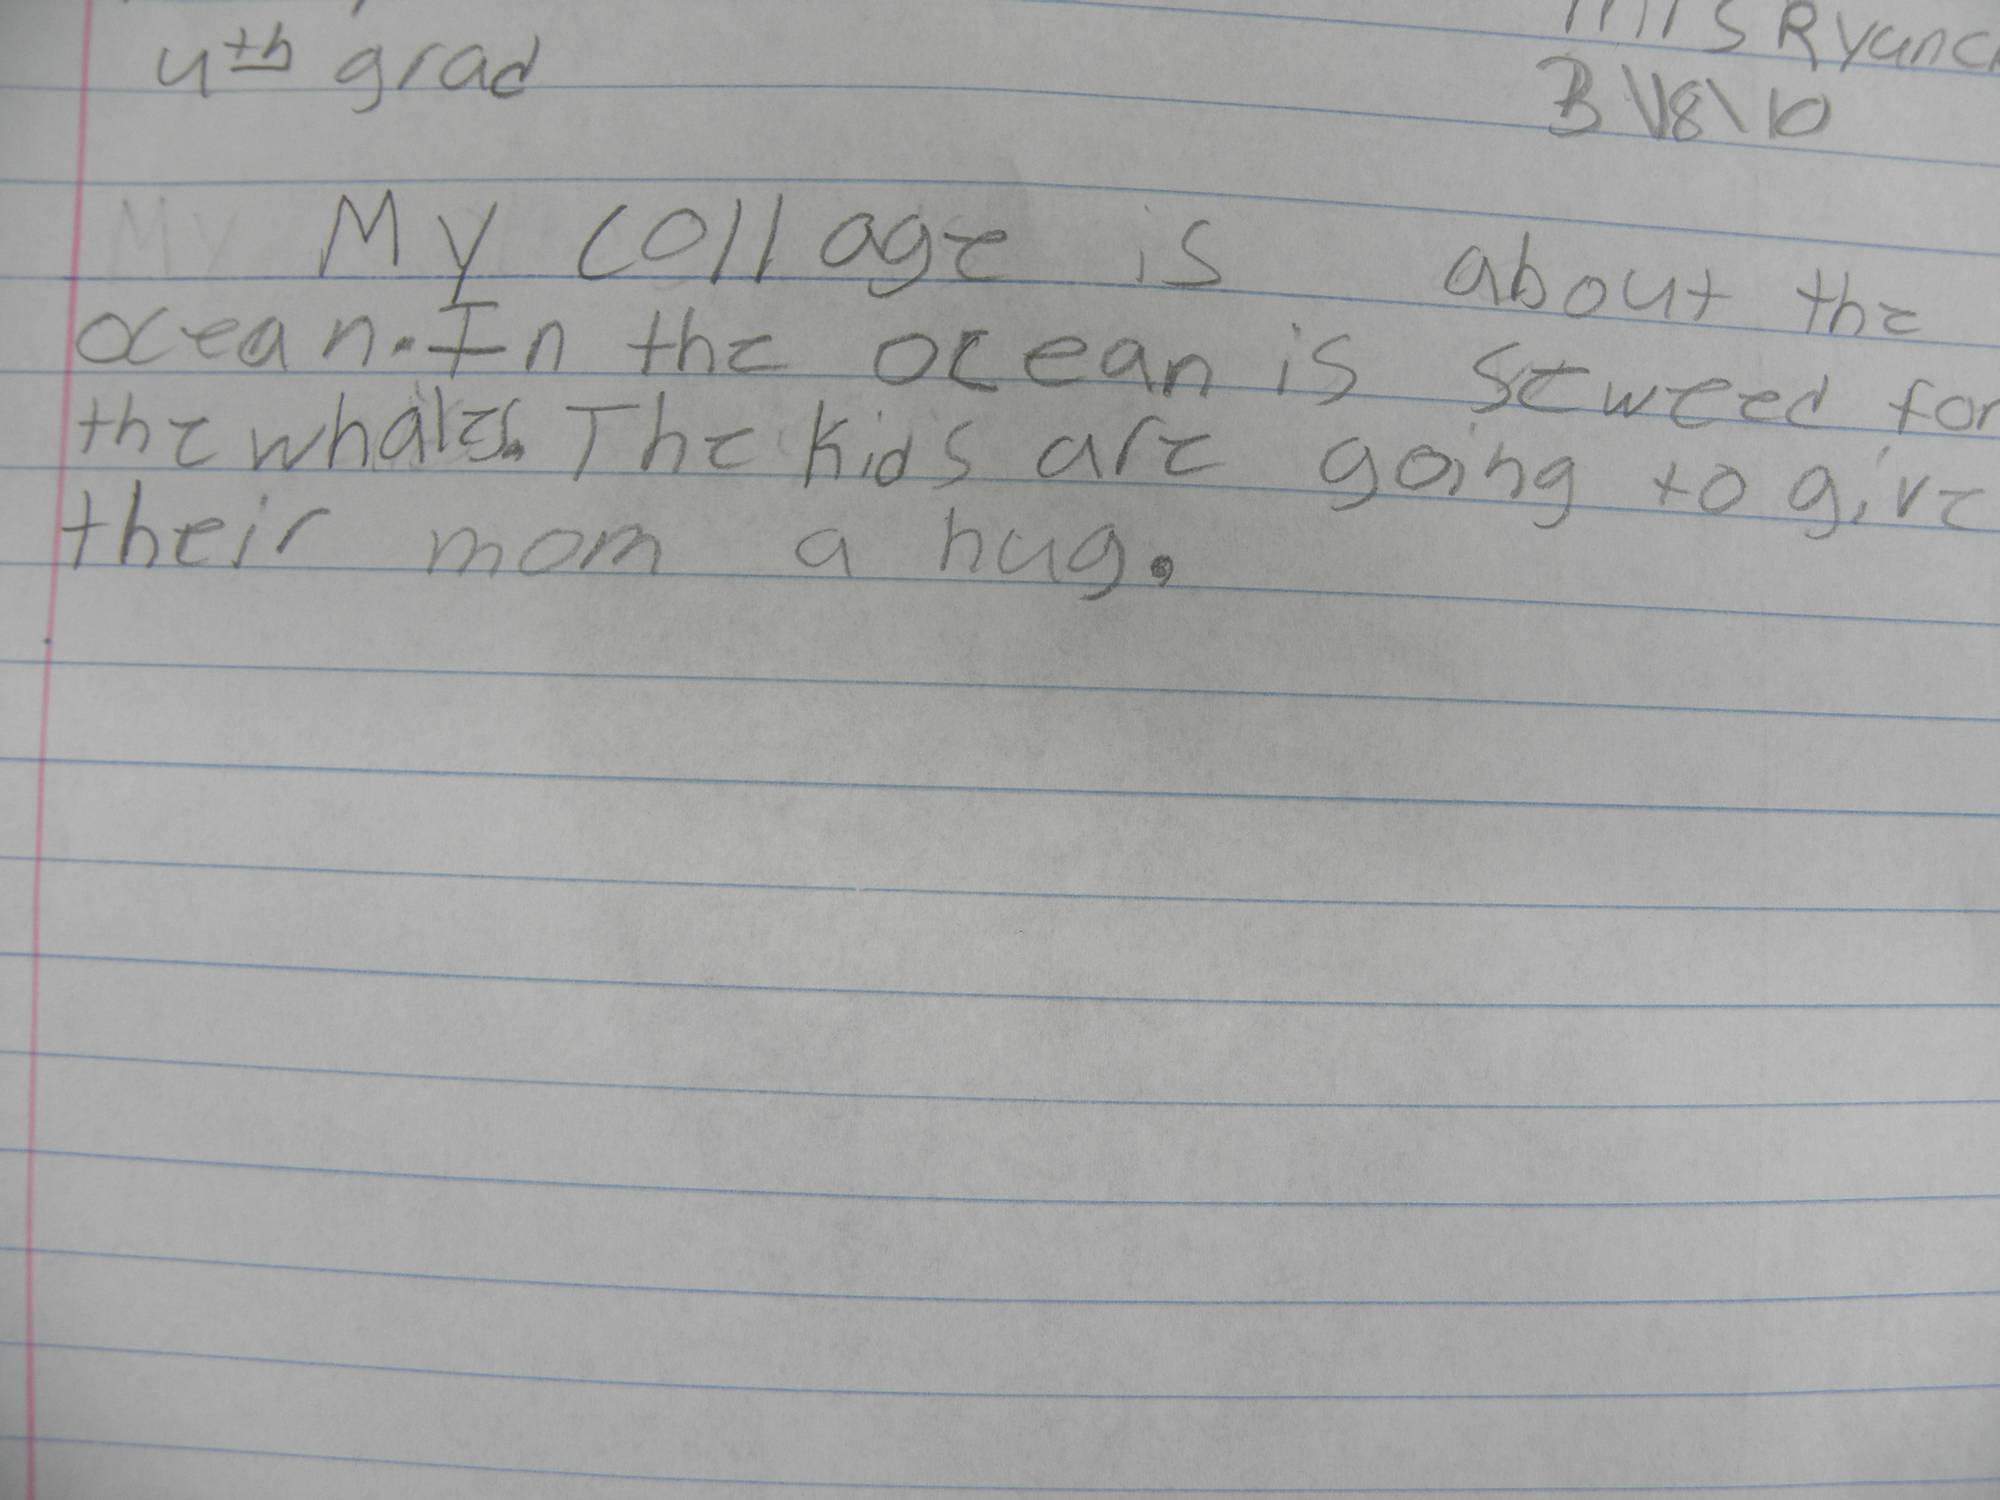 4th grad
Mrs Ryanc
3\18\10
My My collage is about the
ocean. In the ocean is seweed for
the whales. The kids are going to give
their mom a hug.